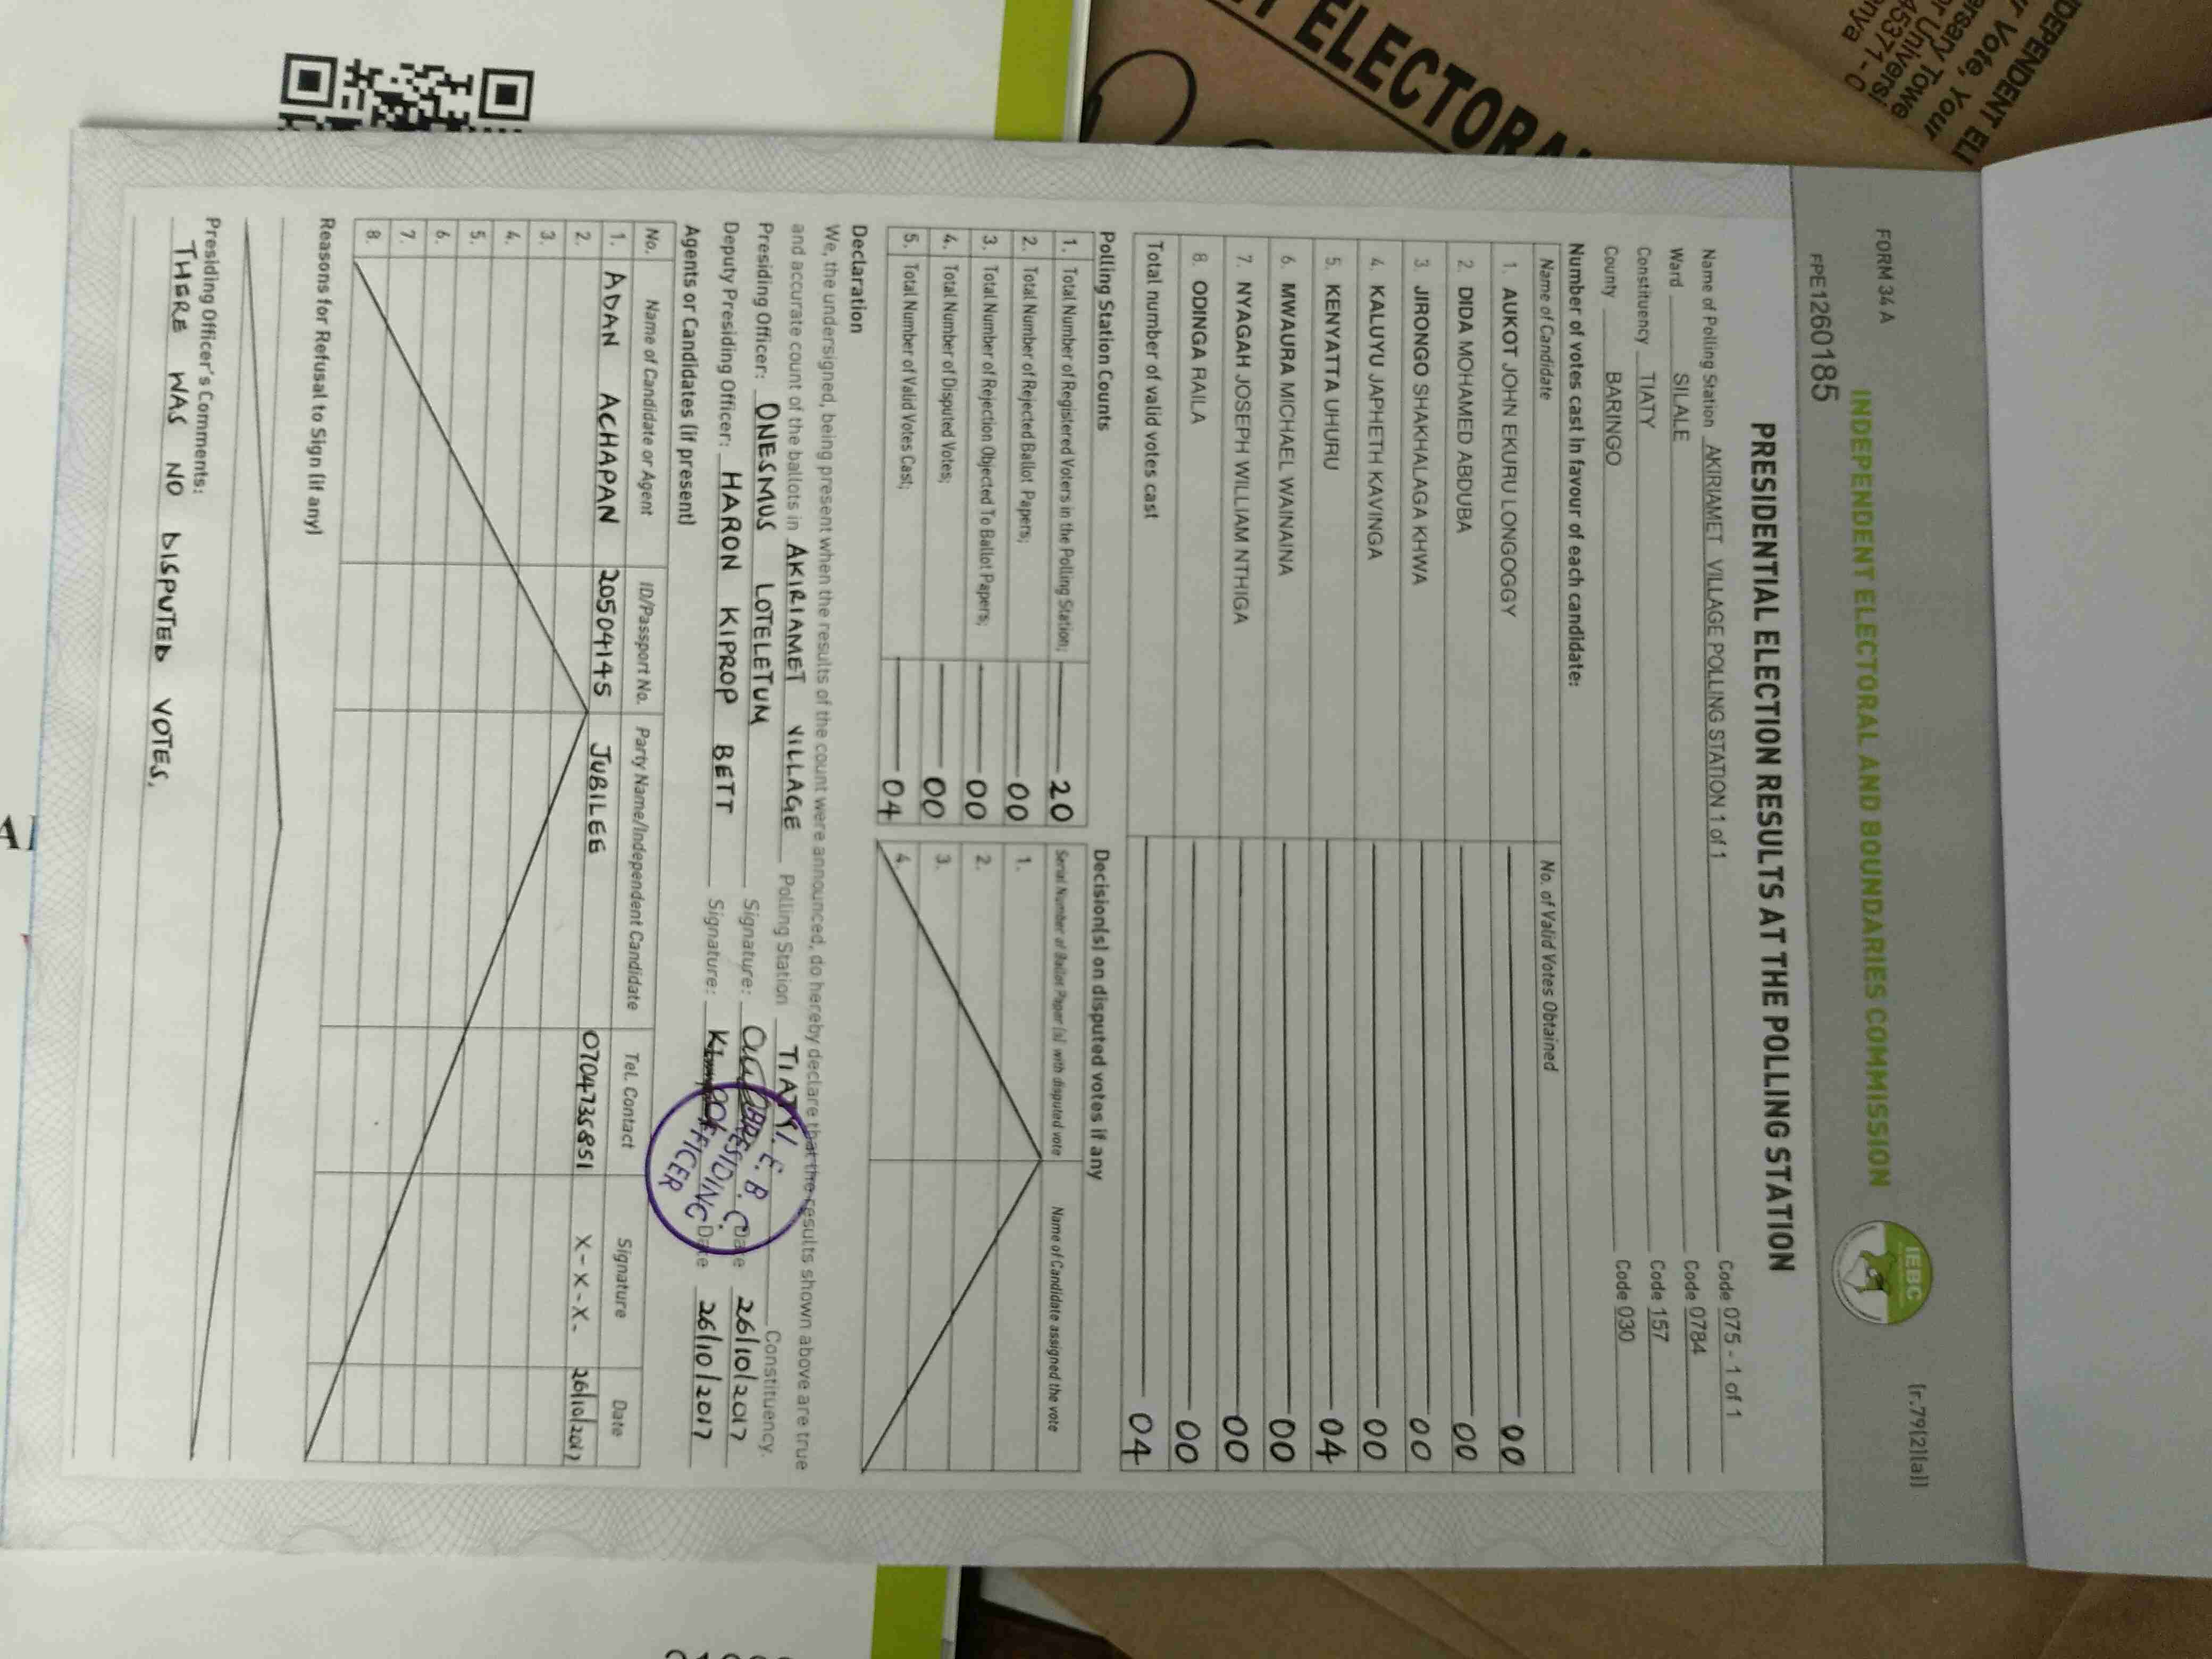 FORM 34 A
[r.79(2)(a)]
INDEPENDENT ELECTORAL AND BOUNDARIES COMMISSION
IEBC
FPE1260185
PRESIDENTIAL ELECTION RESULTS AT THE POLLING STATION
Name of Polling Station AKIRIAMET VILLAGE POLLING STATION 1 of 1 Code 075 - 1 of 1
Ward SILALE Code 0784
Constituency TIATY Code 157
County BARINGO Code 030
Number of votes cast in favour of each candidate:
Name of Candidate No. of Valid Votes Obtained
1. AUKOT JOHN EKURU LONGOGGY 00
2. DIDA MOHAMED ABDUBA 00
3. JIRONGO SHAKHALAGA KHWA 00
4. KALUYU JAPHETH KAVINGA 00
5. KENYATTA UHURU 04
6. MWAURA MICHAEL WAINAINA 00
7. NYAGAH JOSEPH WILLIAM NTHIGA 00
8. ODINGA RAILA 00
Total number of valid votes cast 04
Polling Station Counts
1. Total Number of Registered Voters in the Polling Station; 20
2. Total Number of Rejected Ballot Papers; 00
3. Total Number of Rejection Objected To Ballot Papers; 00
4. Total Number of Disputed Votes; 00
5. Total Number of Valid Votes Cast; 04
Decision(s) on disputed votes if any
Serial Number of Ballot Paper (s) with disputed vote Name of Candidate assigned the vote
1.
2.
3.
4.
Declaration
We, the undersigned, being present when the results of the count were announced, do hereby declare that the results shown above are true
and accurate count of the ballots in AKIRIAMET VILLAGE Polling Station TIATY Constituency.
Presiding Officer: ONESMUS LOTELETUM Signature: Date 26/10/2017
Deputy Presiding Officer: HARON KIPROP BETT Signature: Date 26/10/2017
I.E.B.C
PRESIDING
OFFICER
Agents or Candidates (if present)
No. Name of Candidate or Agent ID/Passport No. Party Name/Independent Candidate Tel. Contact Signature Date
1. ADAN ACHAPAN 20504145 JUBILEE 0704735851 X-X-X- 26/10/2017
2.
3.
4.
5.
6.
7.
8.
Reasons for Refusal to Sign (if any)
Presiding Officer's Comments:
THERE WAS NO DISPUTED VOTES.
ELECTORAL
INDEPENDENT EL
r Vote, Your
ersary Towe
r Universi
45371 - 0
nya